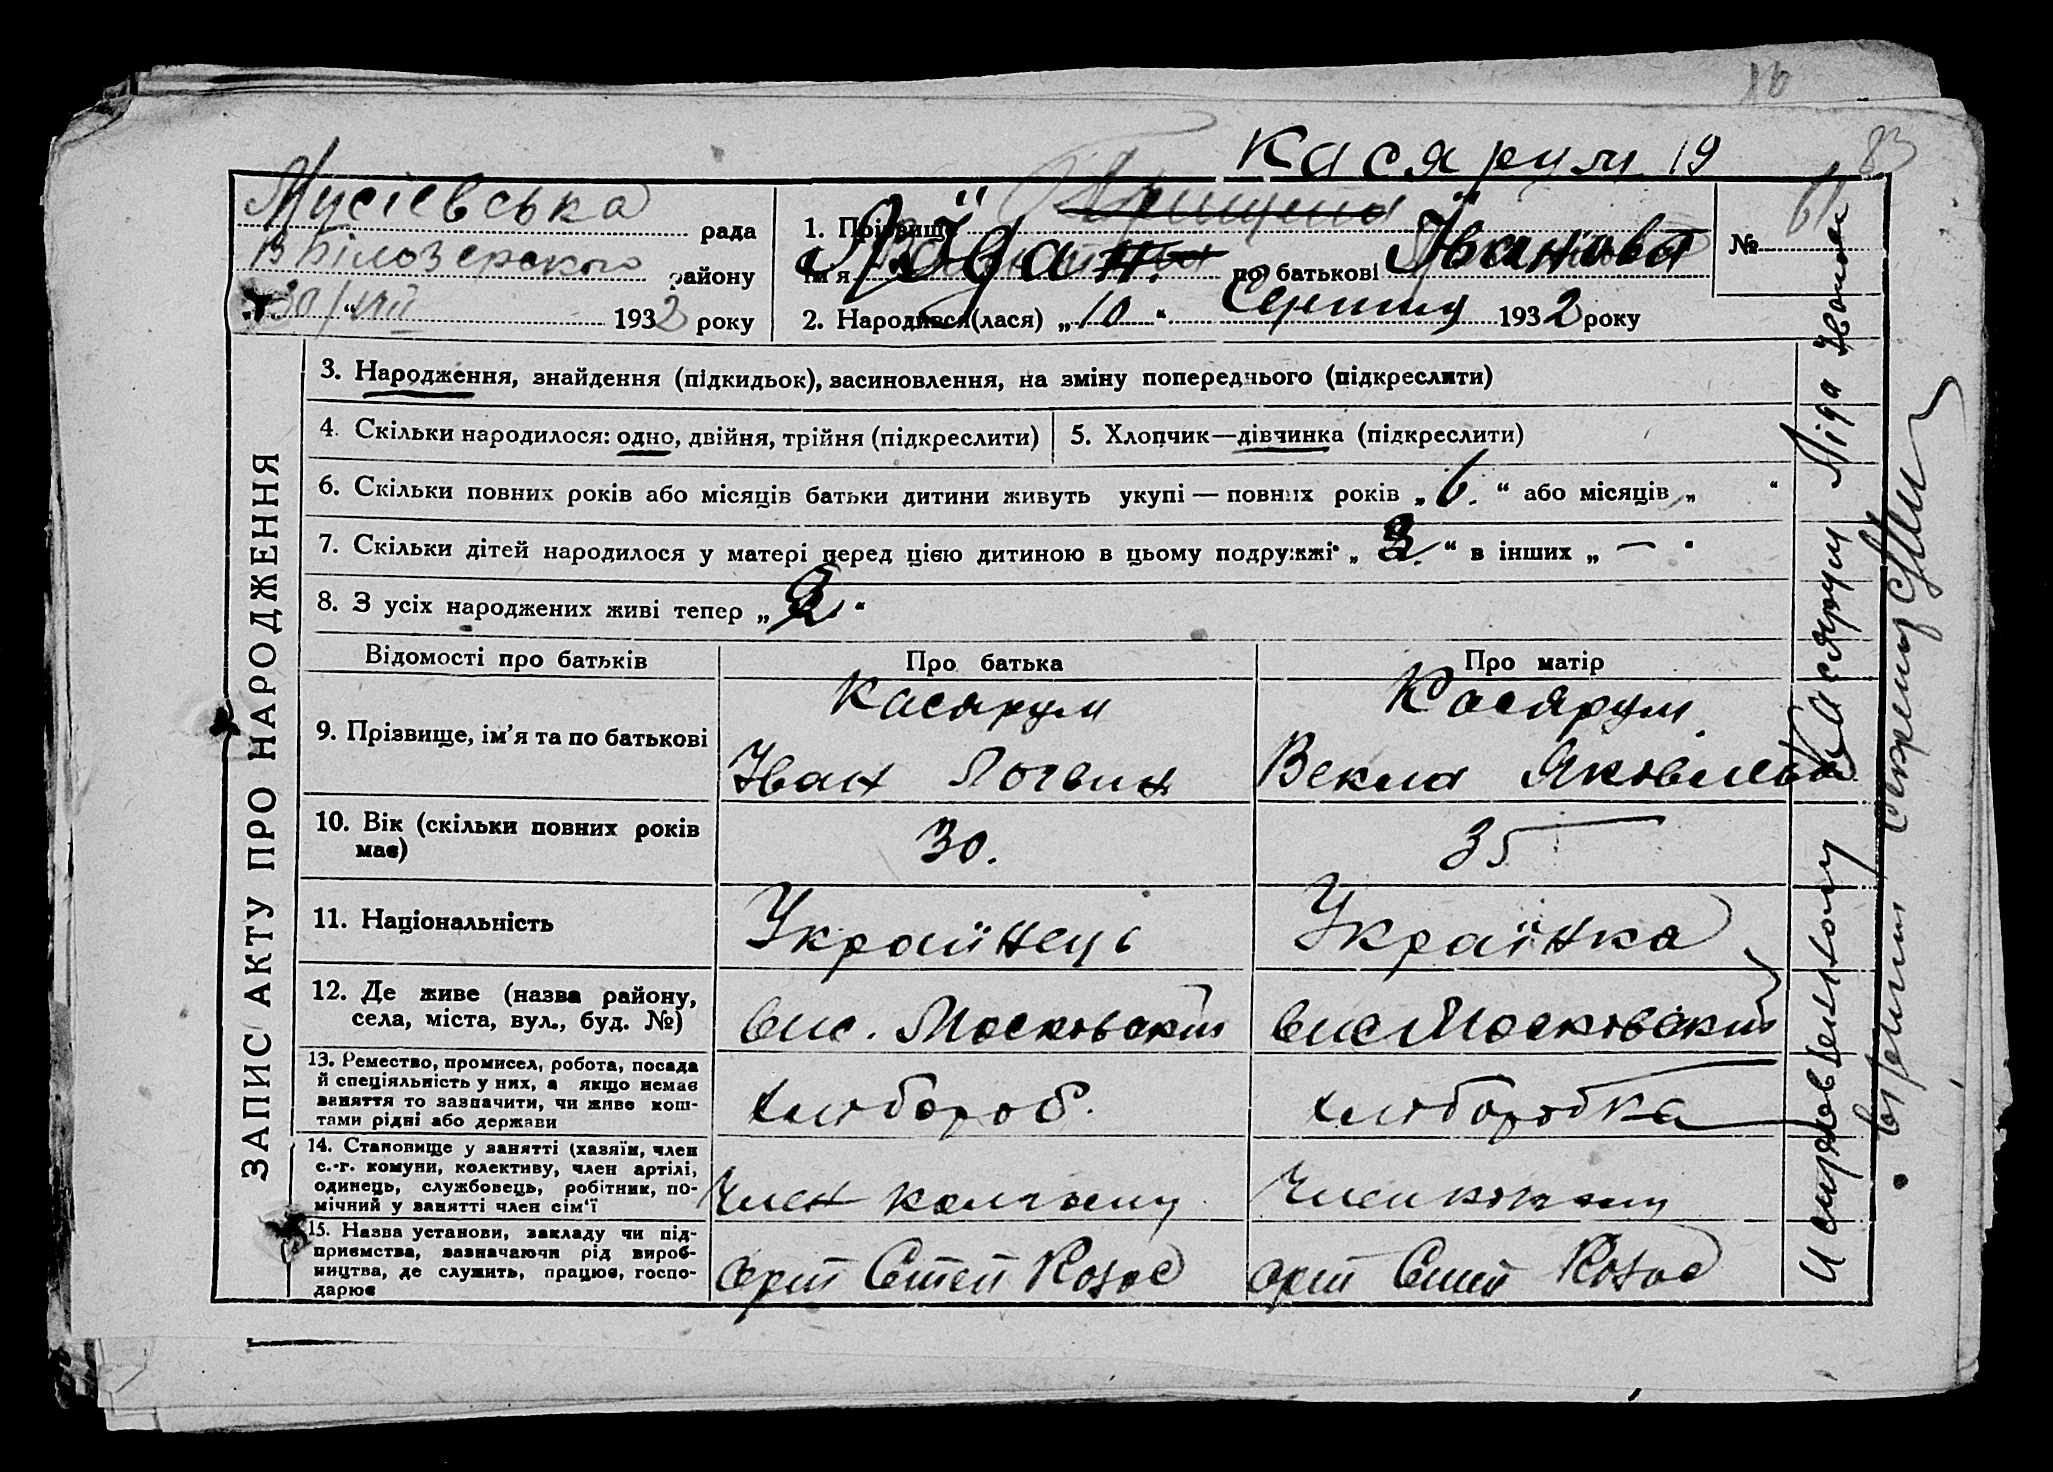 16
Касярум 19
83
Мусіївська рада
В Білозерського району
30/VIII 1932 року
1. Прізвище
ім'я по батькові Іванова
№ 61
2. Народився(лася) „10" Серпня 1932 року
ЗАПИС АКТУ ПРО НАРОДЖЕННЯ
3. Народження, знайдення (підкидьок), засиновлення, на зміну попереднього (підкреслити)
4. Скільки народилося: одно, двійня, трійня (підкреслити)
5. Хлопчик—дівчинка (підкреслити)
6. Скільки повних років або місяців батьки дитини живуть укупі — повних років „6." або місяців „ "
7. Скільки дітей народилося у матері перед цією дитиною в цьому подружжі „3" в інших „—"
8. З усіх народжених живі тепер „2."
Відомості про батьків
Про батька
Про матір
9. Прізвище, ім'я та по батькові
Касярум
Іван Логвин
Касярум
Векла Яковлевна
10. Вік (скільки повних років має)
30.
35
11. Національність
Українець
Українка
12. Де живе (назва району, села, міста, вул., буд. №)
вис. Московський
вис Московський
13. Ремество, промисел, робота, посада й спеціяльність у них, а якщо немає заняття то зазначити, чи живе коштами рідні або держави
хлібороб.
хліборобка
14. Становище у занятті (хазяїн, член с.-г. комуни, колективу, член артілі, одинець, службовець, робітник, помічний у занятті член сім'ї
Член колгоспу
Член колгоспу
15. Назва установи, закладу чи підприємства, зазначаючи рід виробництва, де служить, працює, господарює
арт
арт
Касярум Ліда Івановна